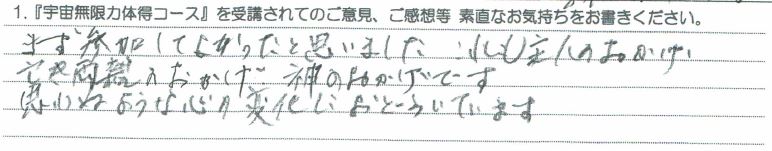 1.『宇宙無限力体得コース』を受講されてのご意見、ご感想等 素直なお気持ちをお書きください。
まず参加してよかったと思いました これも主人のおかげ
亡き両親のおかげ 神のおかげです
思わぬような心の変化におどろいています